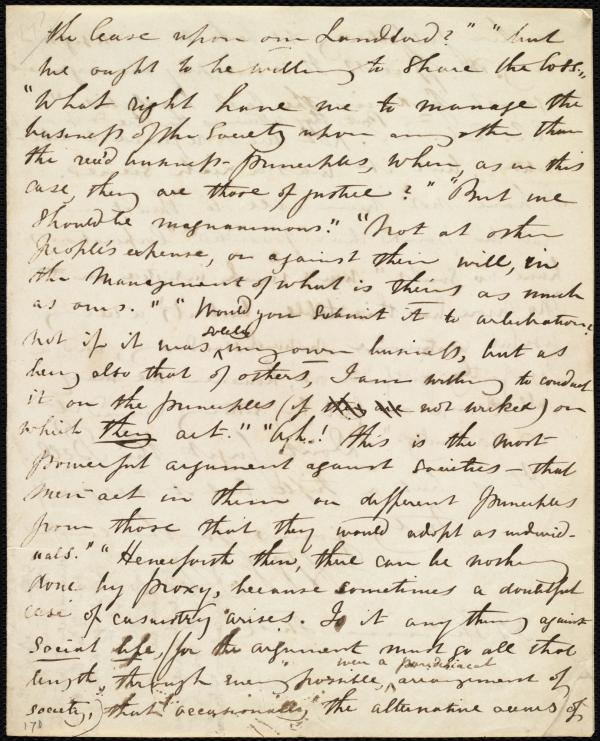 the lease upon our Landlord?" "but
we ought to be willing to share the loss."
"What right have we to manage the
business of the Society upon any other than
the rec'd business-principles, when, as in this
case, they are those of justice?" "But we
should be magnanimous." "Not at other
People's expense, or against their will, in
the management of what is theirs as much
as ours." "Would you submit it to arbitration?
not if it was solely my own business, but as
being also that of others, I am willing to conduct
it on the principles (if not wicked) on
which they act." "Ah! this is the most
powerful argument against societies – that
men act in them on different principles
from those that they would adopt as individ-
uals." "Henceforth then, there can be nothing
done by proxy, because sometimes a doubtful
case of casuistry arises. Is it any thing against
social life, (for the argument must go all that
length, through every possible, even a paradisiacal arrangement of
society,) that "occasionally" the alternative occurs of
170